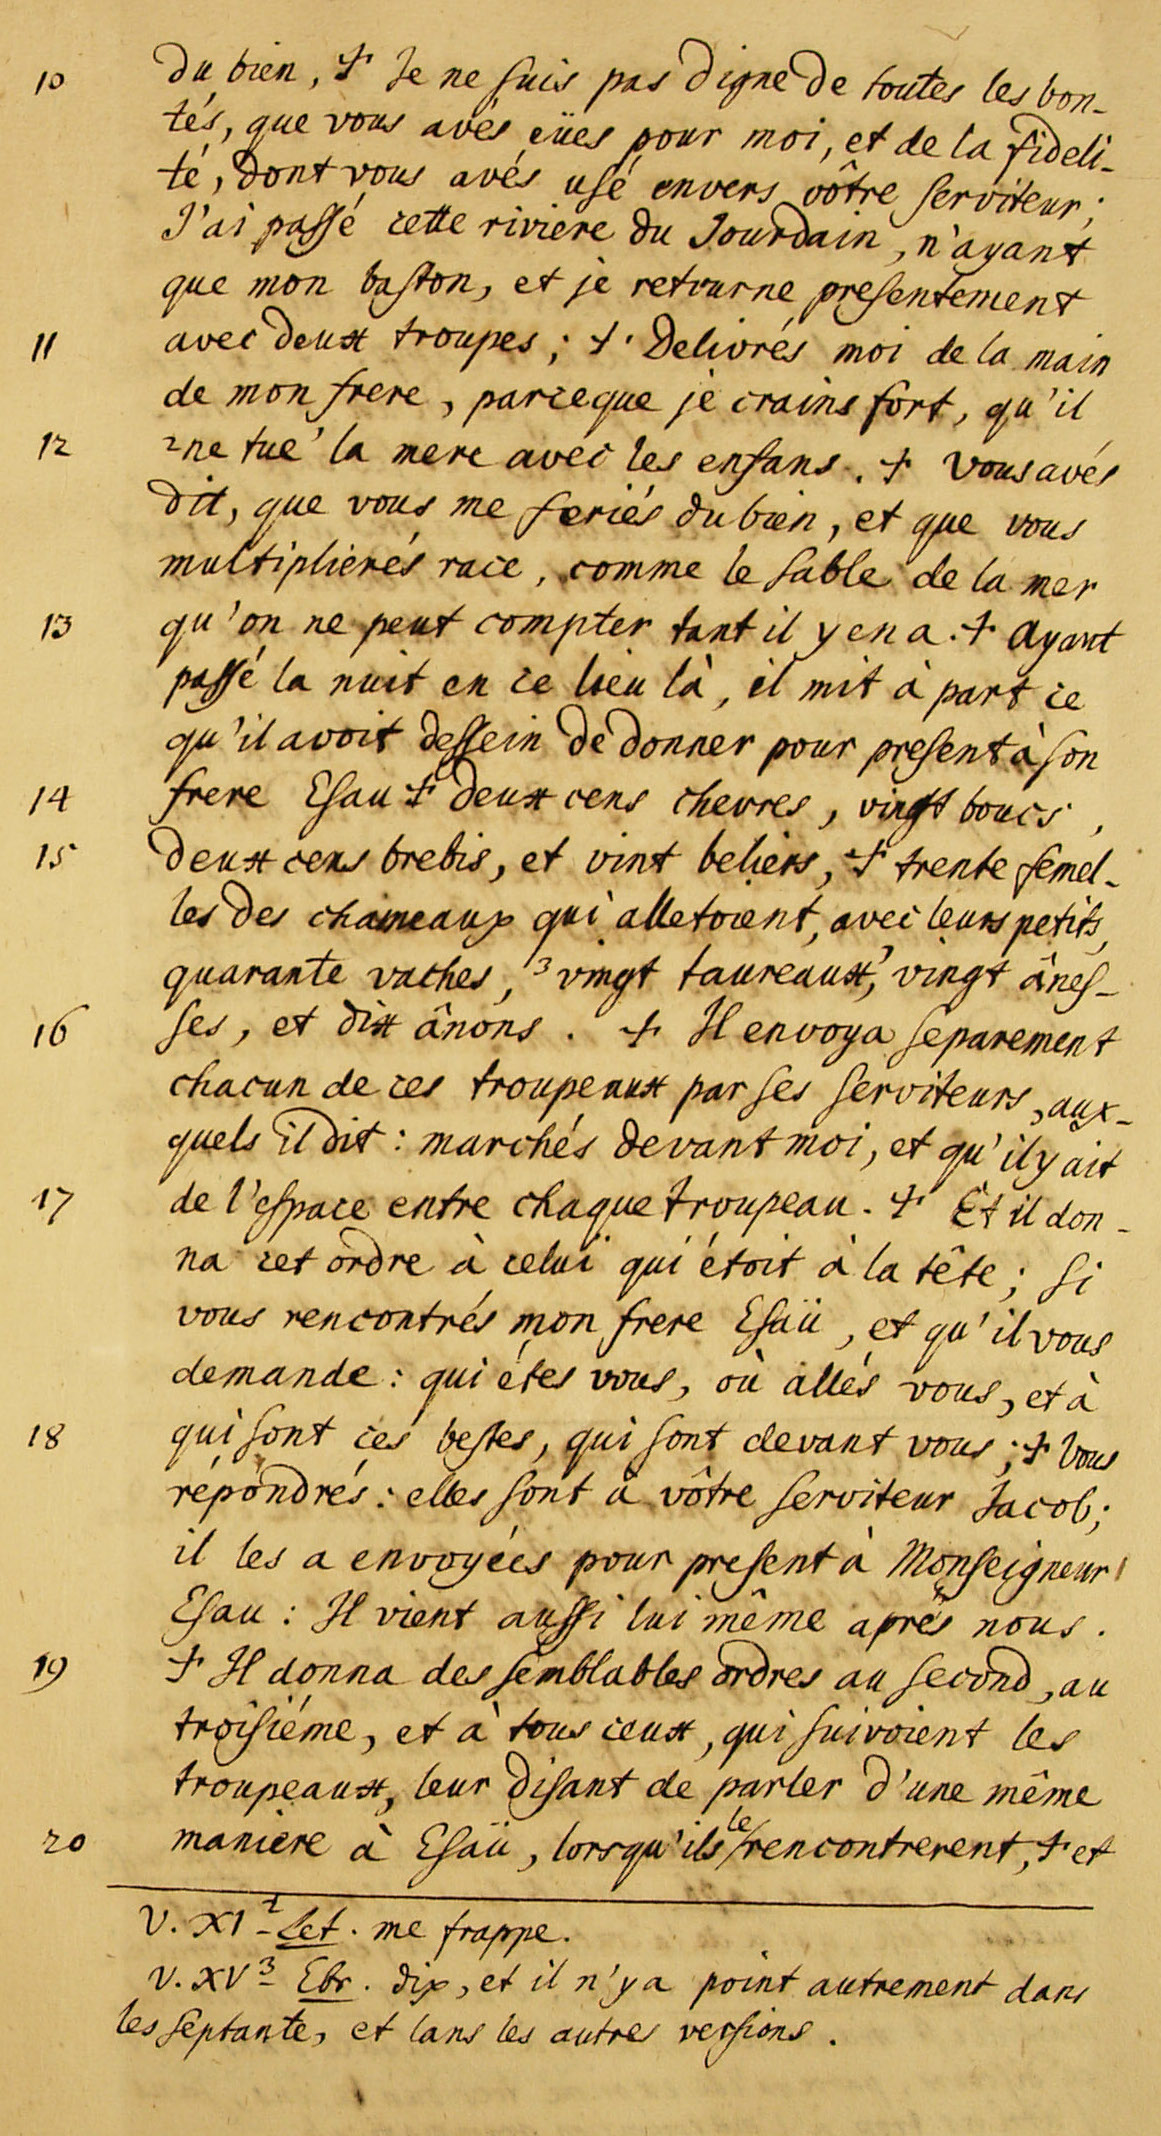 10 du bien, + Je ne suis pas digne de toutes les bon-
tés, que vous avés eües pour moi, et de la fideli-
té, dont vous avés usé envers vôtre serviteur;
J'ai passé cette riviere du Jourdain, n'ayant
que mon baston, et je retourne presentement
11 avec deux troupes; + Delivrés moi de la main
de mon frere, parceque je crains fort, qu'il
12 ²ne tue' la mere avec les enfans. + vous avés
dit, que vous me feriés du bien, et que vous
multiplierés race, comme le sable de la mer
13 qu'on ne peut compter tant il y en a. + ayant
passé la nuit en ce lieu là, il mit à part ce
qu'il avoit dessein de donner pour present à son
14 frere Esau + deux cens chevres, vingt boucs,
15 deux cens brebis, et vint beliers, + trente femel-
les des chameaux qui alletoient, avec leurs petits,
quarante vaches, ³vingt taureaux,' vingt ânes-
16 ses, et dix ânons. + Il envoya separement
chacun de ces troupeaux par ses serviteurs, aux-
quels il dit: marchés devant moi, et qu'il y ait
17 de l'espace entre chaque troupeau. + Et il don-
na cet ordre à celui qui étoit à la tête; si
vous rencontrés mon frere Esaü, et qu'il vous
demande: qui étes vous, où allés vous, et à
18 qui sont ces bestes, qui sont devant vous; + Vous
répondrés: elles sont à vôtre serviteur Jacob;
il les a envoyées pour present à Monseigneur
Esau: Il vient aussi lui même aprés nous.
19 + Il donna des semblables ordres au second, au
troisiéme, et à tous ceux, qui suivoient les
troupeaux, leur disant de parler d'une même
20 maniere à Esaü, lorsqu'ils le rencontrerent, + et
V. XI ² Let. me frappe.
V. XV ³ Ebr. dix, et il n'y a point autrement dans
les septante, et lans les autres versions.